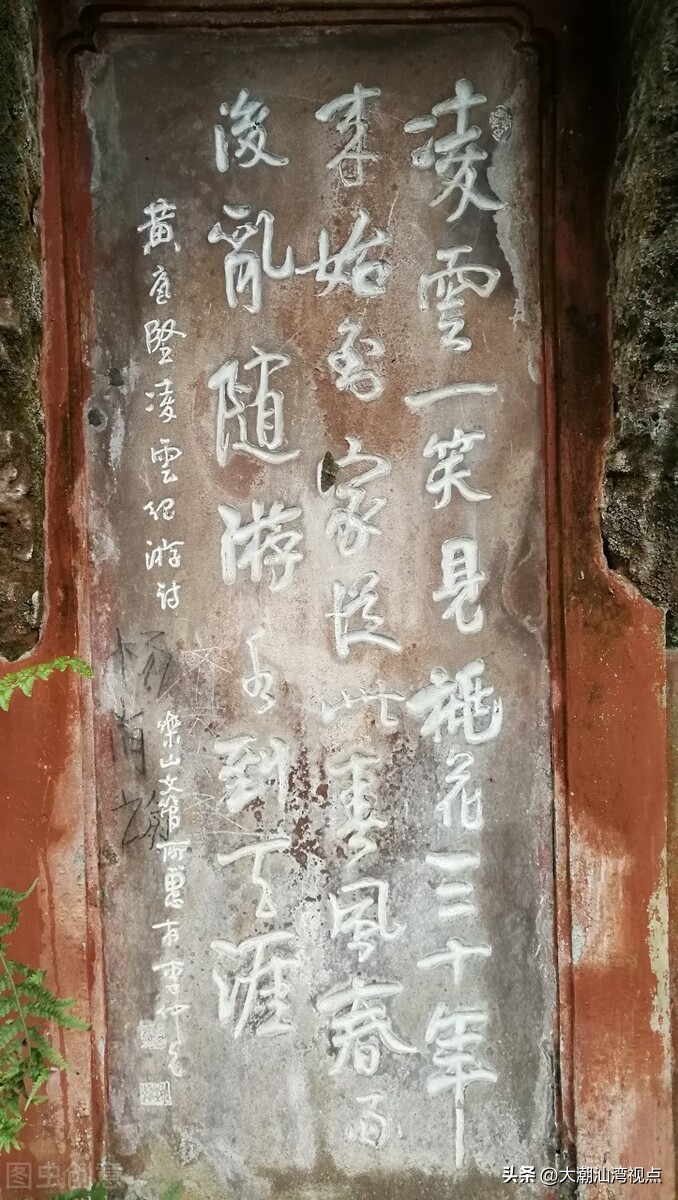 凌雲一笑見桃花三十年
来始到家從此春風春雨
後亂随游水到天涯
黄庭堅凌雲紀游詩
樂山文管所惠存李仲
图虫创意
头条 @大潮汕湾视点